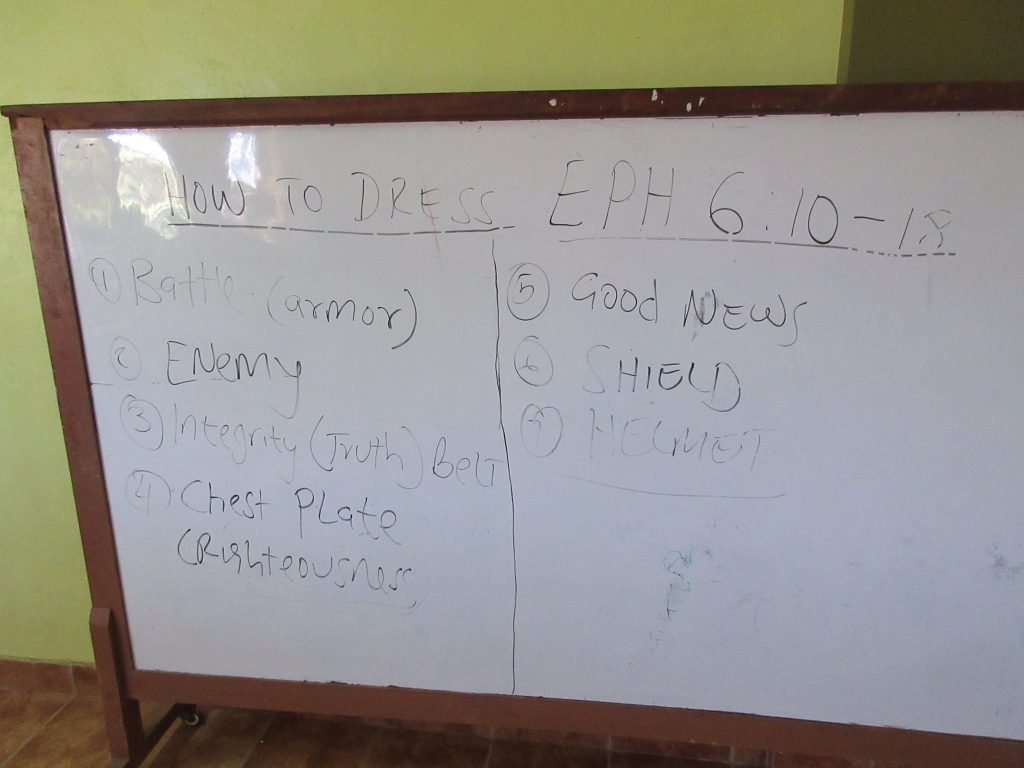 HOW TO DRESS EPH 6:10-18
① Battle (armor)
② ENemy
③ Integrity (Truth) Belt
④ Chest PLate
(Righteousness
⑤ Good NEWS
⑥ SHIELD
⑦ HELMET